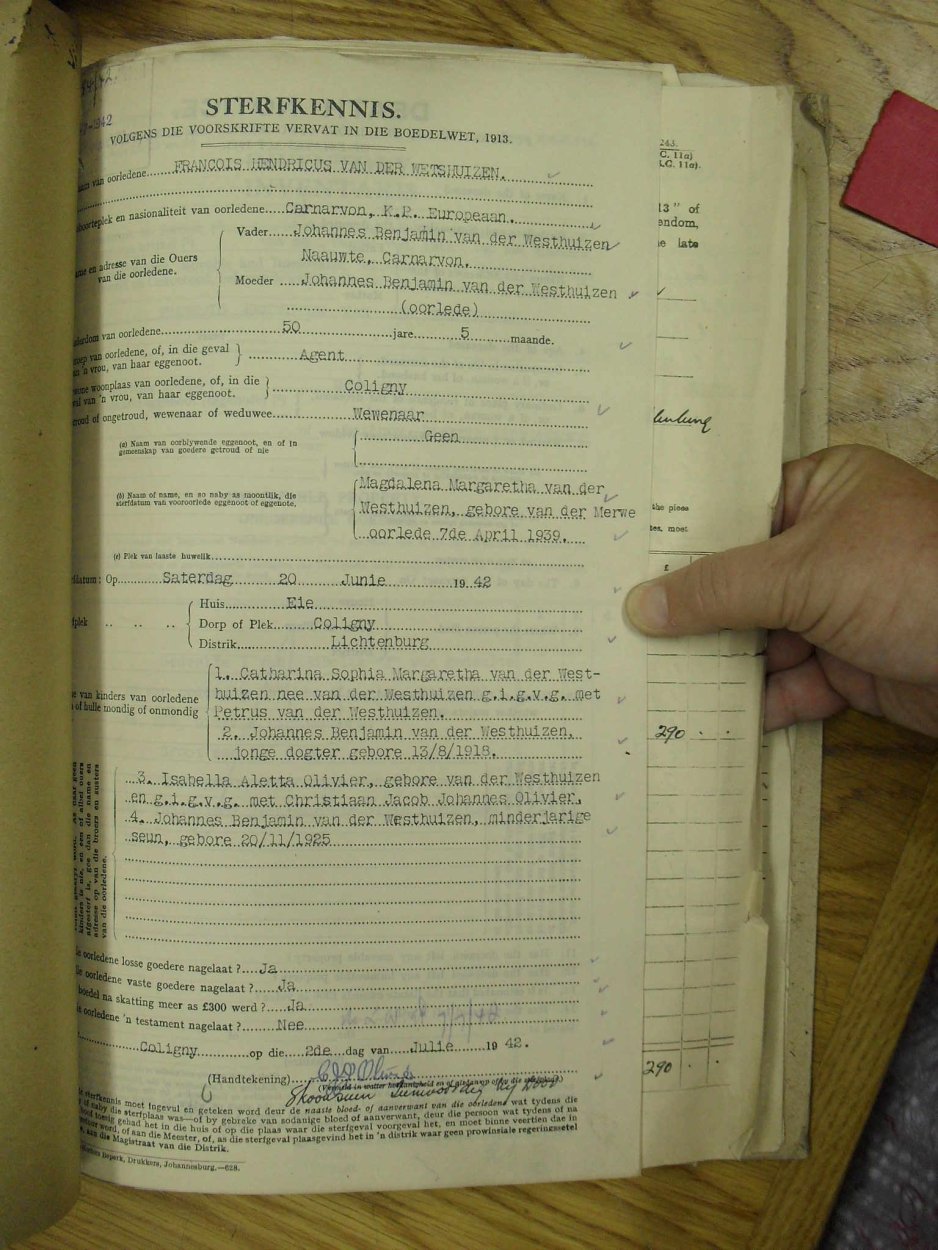 1942
STERFKENNIS.
VOLGENS DIE VOORSKRIFTE VERVAT IN DIE BOEDELWET, 1913.
van oorledene....FRANCOIS HENDRICUS VAN DER WETSHUIZEN.
en nasionaliteit van oorledene....Carnarvon, K.P. Europeaan.
en adresse van die Ouers van die oorledene.
Vader ....Johannes Benjamin van der Westhuizen
Naauwte, Carnarvon.
Moeder ....Johannes Benjamin van der Westhuizen
(oorlede)
van oorledene....50....jare....5....maande.
van oorledene, of, in die geval
'n vrou, van haar eggenoot. ....Agent
woonplaas van oorledene, of, in die
van 'n vrou, van haar eggenoot. ....Coligny
of ongetroud, wewenaar of weduwee....Wewenaar
(a) Naam van oorblywende eggenoot, en of in
gemeenskap van goedere getroud of nie
....Geen....
(b) Naam of name, en so naby as moontlik, die
sterfdatum van vooroorlede eggenoot of eggenote,
Magdalena Margaretha van der
Westhuizen, gebore van der Merwe
oorlede 7de April 1939.
(c) Plek van laaste huwelik....
Op....Saterdag 20 Junie 1942
Huis....Eie
Dorp of Plek....Coligny
Distrik....Lichtenburg
van kinders van oorledene
of hulle mondig of onmondig
1. Catharina Sophia Margaretha van der West-
huizen nee van der Westhuizen g.i.g.v.g. met
Petrus van der Westhuizen.
2. Johannes Benjamin van der Westhuizen,
jonge dogter gebore 13/8/1918.
3. Isabella Aletta Olivier, gebore van der Westhuizen
en g.i.g.v.g. met Christiaan Jacob Johannes Olivier,
4. Johannes Benjamin van der Westhuizen, minderjarige
seun, gebore 20/11/1925
kinders is nie, en een of albei ouers
afgesterf is, gee dan die name en
adresse op van die broers en susters
van die oorledene.
oorledene losse goedere nagelaat ?....Ja
oorledene vaste goedere nagelaat ?....Ja
boedel na skatting meer as £300 werd ?....Ja
oorledene 'n testament nagelaat ?....Nee
....Coligny....op die....2de....dag van....Julie....1942.
(Handtekening)....
Skoonseun
sterfkennis moet ingevul en geteken word deur die naaste bloed- of aanverwant van die oorledene wat tydens die
naby die sterfplaas was—of by gebreke van sodanige bloed of aanverwant, deur die persoon wat tydens of na
gehad het in die huis of op die plaas waar die sterfgeval voorgeval het, en moet binne veertien dae in
word, of aan die Meester, of, as die sterfgeval plaasgevind het in 'n distrik waar geen provinsiale regeringsetel
aan die Magistraat van die Distrik.
Beperk, Drukkers, Johannesburg.—628.
243.
C. 11a)
L.C. 11a).
13" of
late
the piece
moet
£
290
290